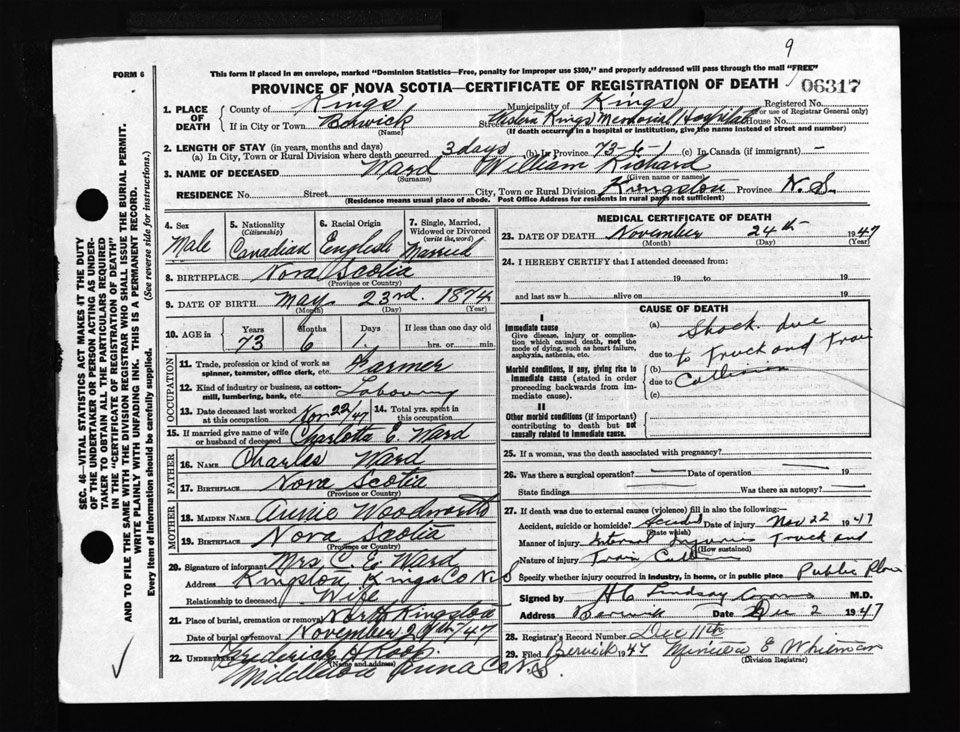 9
FORM 6
This form if placed in an envelope, marked "Dominion Statistics—Free, penalty for improper use $300," and properly addressed will pass through the mail "FREE"
PROVINCE OF NOVA SCOTIA—CERTIFICATE OF REGISTRATION OF DEATH
06317
1. PLACE OF DEATH
County of Kings Municipality of Kings Registered No.
(For use of Registrar General only)
If in City or Town Berwick Street Western Kings Memorial Hospital House No.
(Name) (If death occurred in a hospital or institution, give the name instead of street and number)
2. LENGTH OF STAY (in years, months and days)
(a) In City, Town or Rural Division where death occurred 3 days (b) In Province 73-6-1 (c) In Canada (if immigrant) -
3. NAME OF DECEASED Ward William Richard
(Surname) (Given name or names)
RESIDENCE No. Street City, Town or Rural Division Kingston Province N.S.
(Residence means usual place of abode. Post Office Address for residents in rural parts not sufficient)
4. Sex
Male
5. Nationality
(Citizenship)
Canadian
6. Racial Origin
English
7. Single, Married, Widowed or Divorced
(write the word)
Married
8. BIRTHPLACE Nova Scotia
(Province or Country)
9. DATE OF BIRTH May 23rd. 1874
(Month) (Day) (Year)
10. AGE in Years Months Days If less than one day old
73 6 1 hrs. or min.
OCCUPATION
11. Trade, profession or kind of work as spinner, teamster, office clerk, etc. Farmer
12. Kind of industry or business, as cotton-mill, lumbering, bank, etc. Labouring
13. Date deceased last worked at this occupation Nov 22/47 14. Total yrs. spent in this occupation
15. If married give name of wife or husband of deceased Charlotte E. Ward
FATHER
16. NAME Charles Ward
17. BIRTHPLACE Nova Scotia
(Province or Country)
MOTHER
18. MAIDEN NAME Annie Woodworth
19. BIRTHPLACE Nova Scotia
(Province or Country)
20. Signature of informant Mrs C. E. Ward
Address Kingston, Kings Co N.S
Relationship to deceased Wife
21. Place of burial, cremation or removal North Kingston
Date of burial or removal November '47
22. UNDERTAKER Frederick H Roop.
(Name and address)
Middleton Anna Co N.S.
MEDICAL CERTIFICATE OF DEATH
23. DATE OF DEATH November 24th 1947
(Month) (Day) (Year)
24. I HEREBY CERTIFY that I attended deceased from:
19 to 19
and last saw h alive on 19
CAUSE OF DEATH
I
Immediate cause
Give disease, injury or complication which caused death, not the mode of dying, such as heart failure, asphyxia, asthenia, etc.
(a) Shock due
due to to Truck and Train
Morbid conditions, if any, giving rise to immediate cause (stated in order proceeding backwards from immediate cause).
(b)
due to Collision
(c)
II
Other morbid conditions (if important) contributing to death but not causally related to immediate cause.
25. If a woman, was the death associated with pregnancy?
26. Was there a surgical operation? Date of operation 19
State findings Was there an autopsy?
27. If death was due to external causes (violence) fill in also the following:—
Accident, suicide or homicide? Accident Date of injury Nov 22 1947
(State which)
Manner of injury Internal Injuries Truck and
(How sustained)
Nature of injury Train Collision
Specify whether injury occurred in industry, in home, or in public place Public Place
Signed by H C Lindsay M.D.
Address Berwick Date Dec 2 1947
28. Registrar's Record Number Dec 11th
29. Filed Berwick 1947 Minetta E Whitman
(Division Registrar)
SEC. 46—VITAL STATISTICS ACT MAKES AT THE DUTY
OF THE UNDERTAKER OR PERSON ACTING AS UNDER-
TAKER TO OBTAIN ALL THE PARTICULARS REQUIRED
IN THE "CERTIFICATE OF REGISTRATION OF DEATH"
AND TO FILE THE SAME WITH THE DIVISION REGISTRAR WHO SHALL ISSUE THE BURIAL PERMIT.
WRITE PLAINLY WITH UNFADING INK. THIS IS A PERMANENT RECORD.
Every item of Information should be carefully supplied. (See reverse side for instructions.)